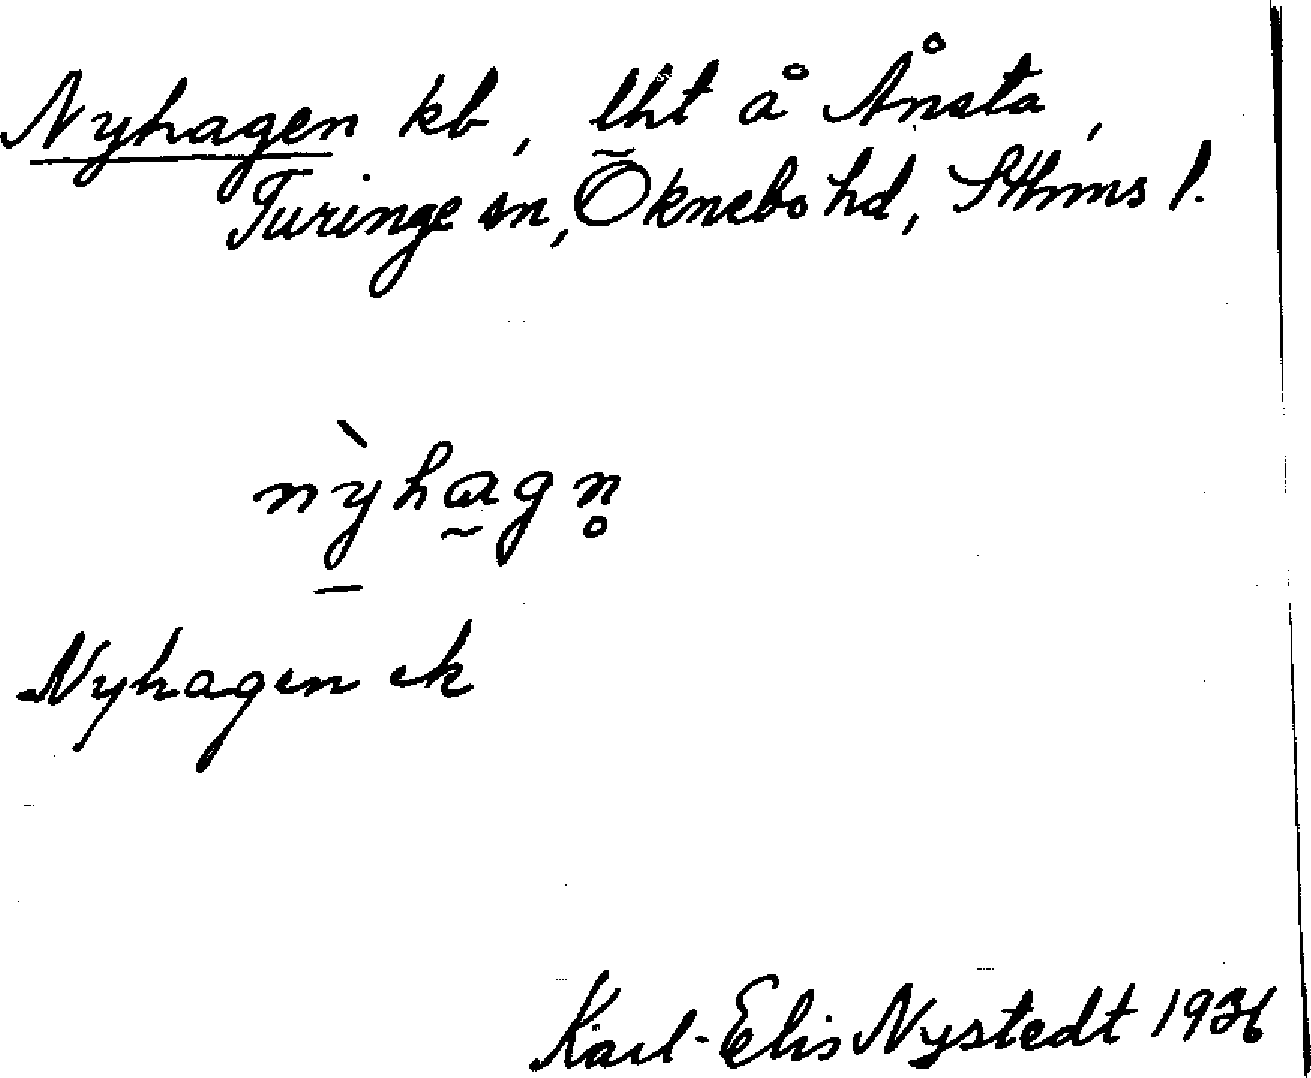 Nyhagen kb, lht å Ånsta,
Turinge sn, Öknebo hd, Sthms l.
nỳ̱ha̰gn̥
Nyhagen ek
Karl-Elis Nystedt 1936